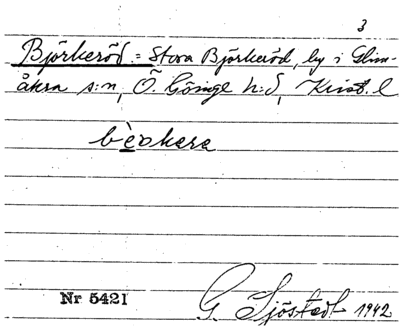 3
Björkeröd = Stora Björkeröd, by i Glim-
åkra s:n, Ö. Göinge h:d, Krist. l
bèrkera
Nr 5421
G. Sjöstedt 1942